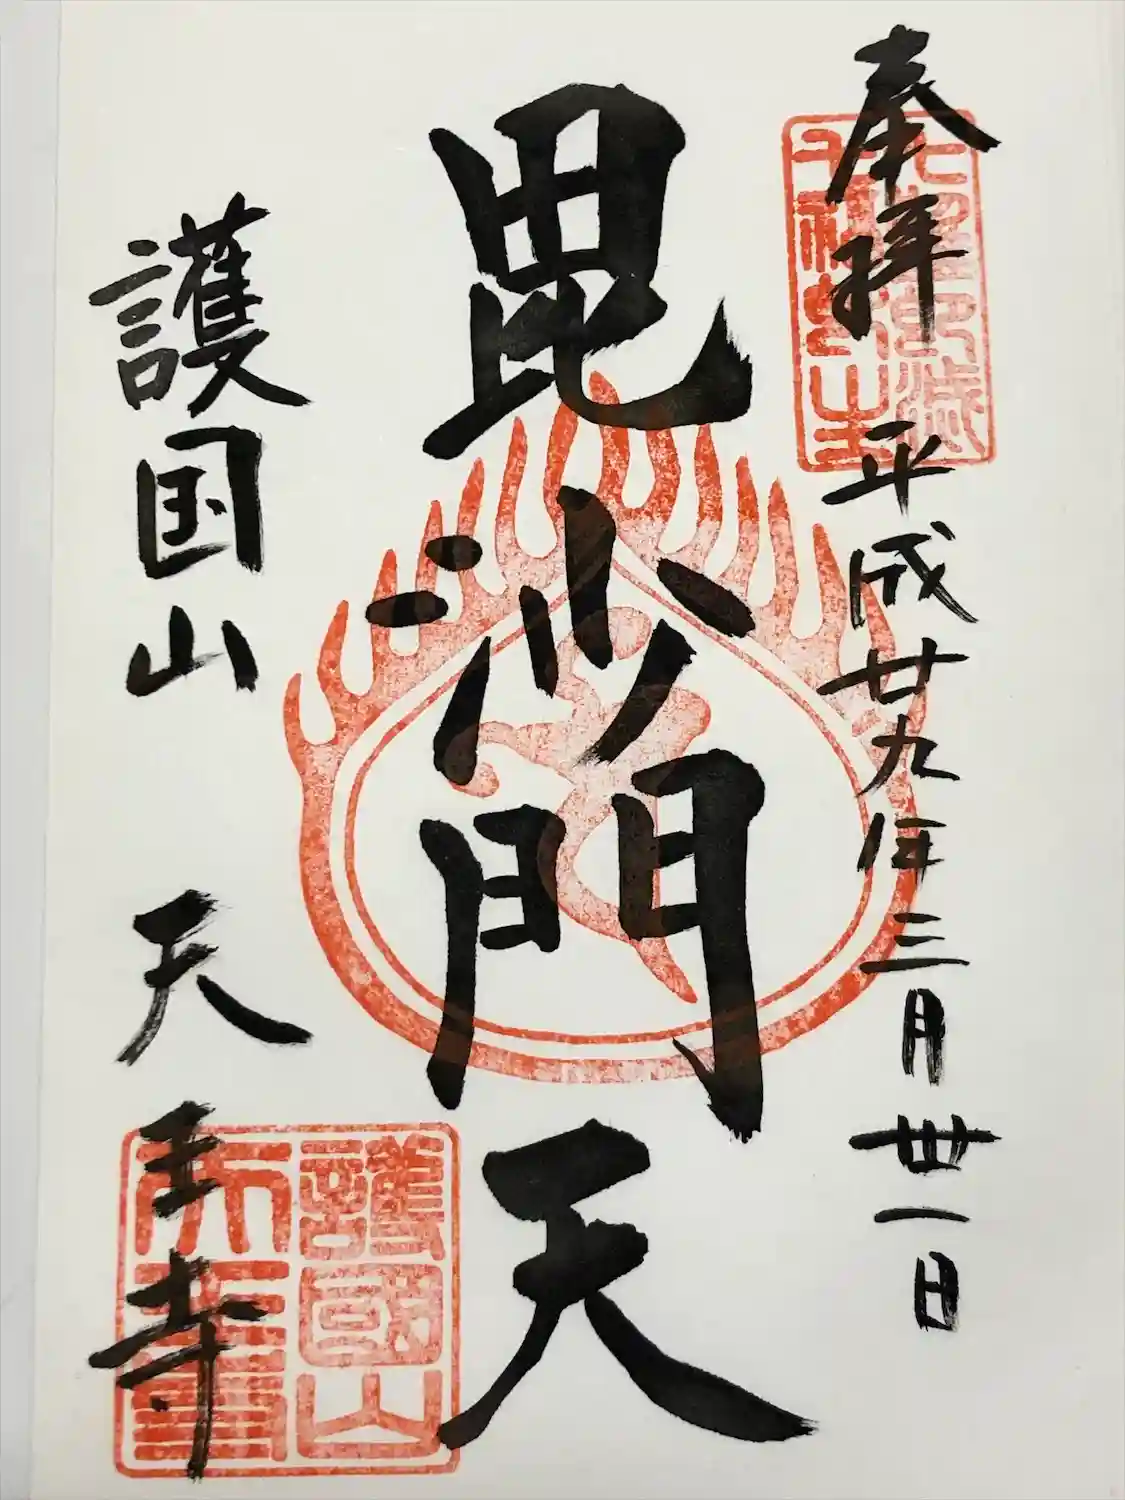 奉拝
平成廿九年三月丗一日
毘沙門天
護国山
天王寺
護國山
天王寺